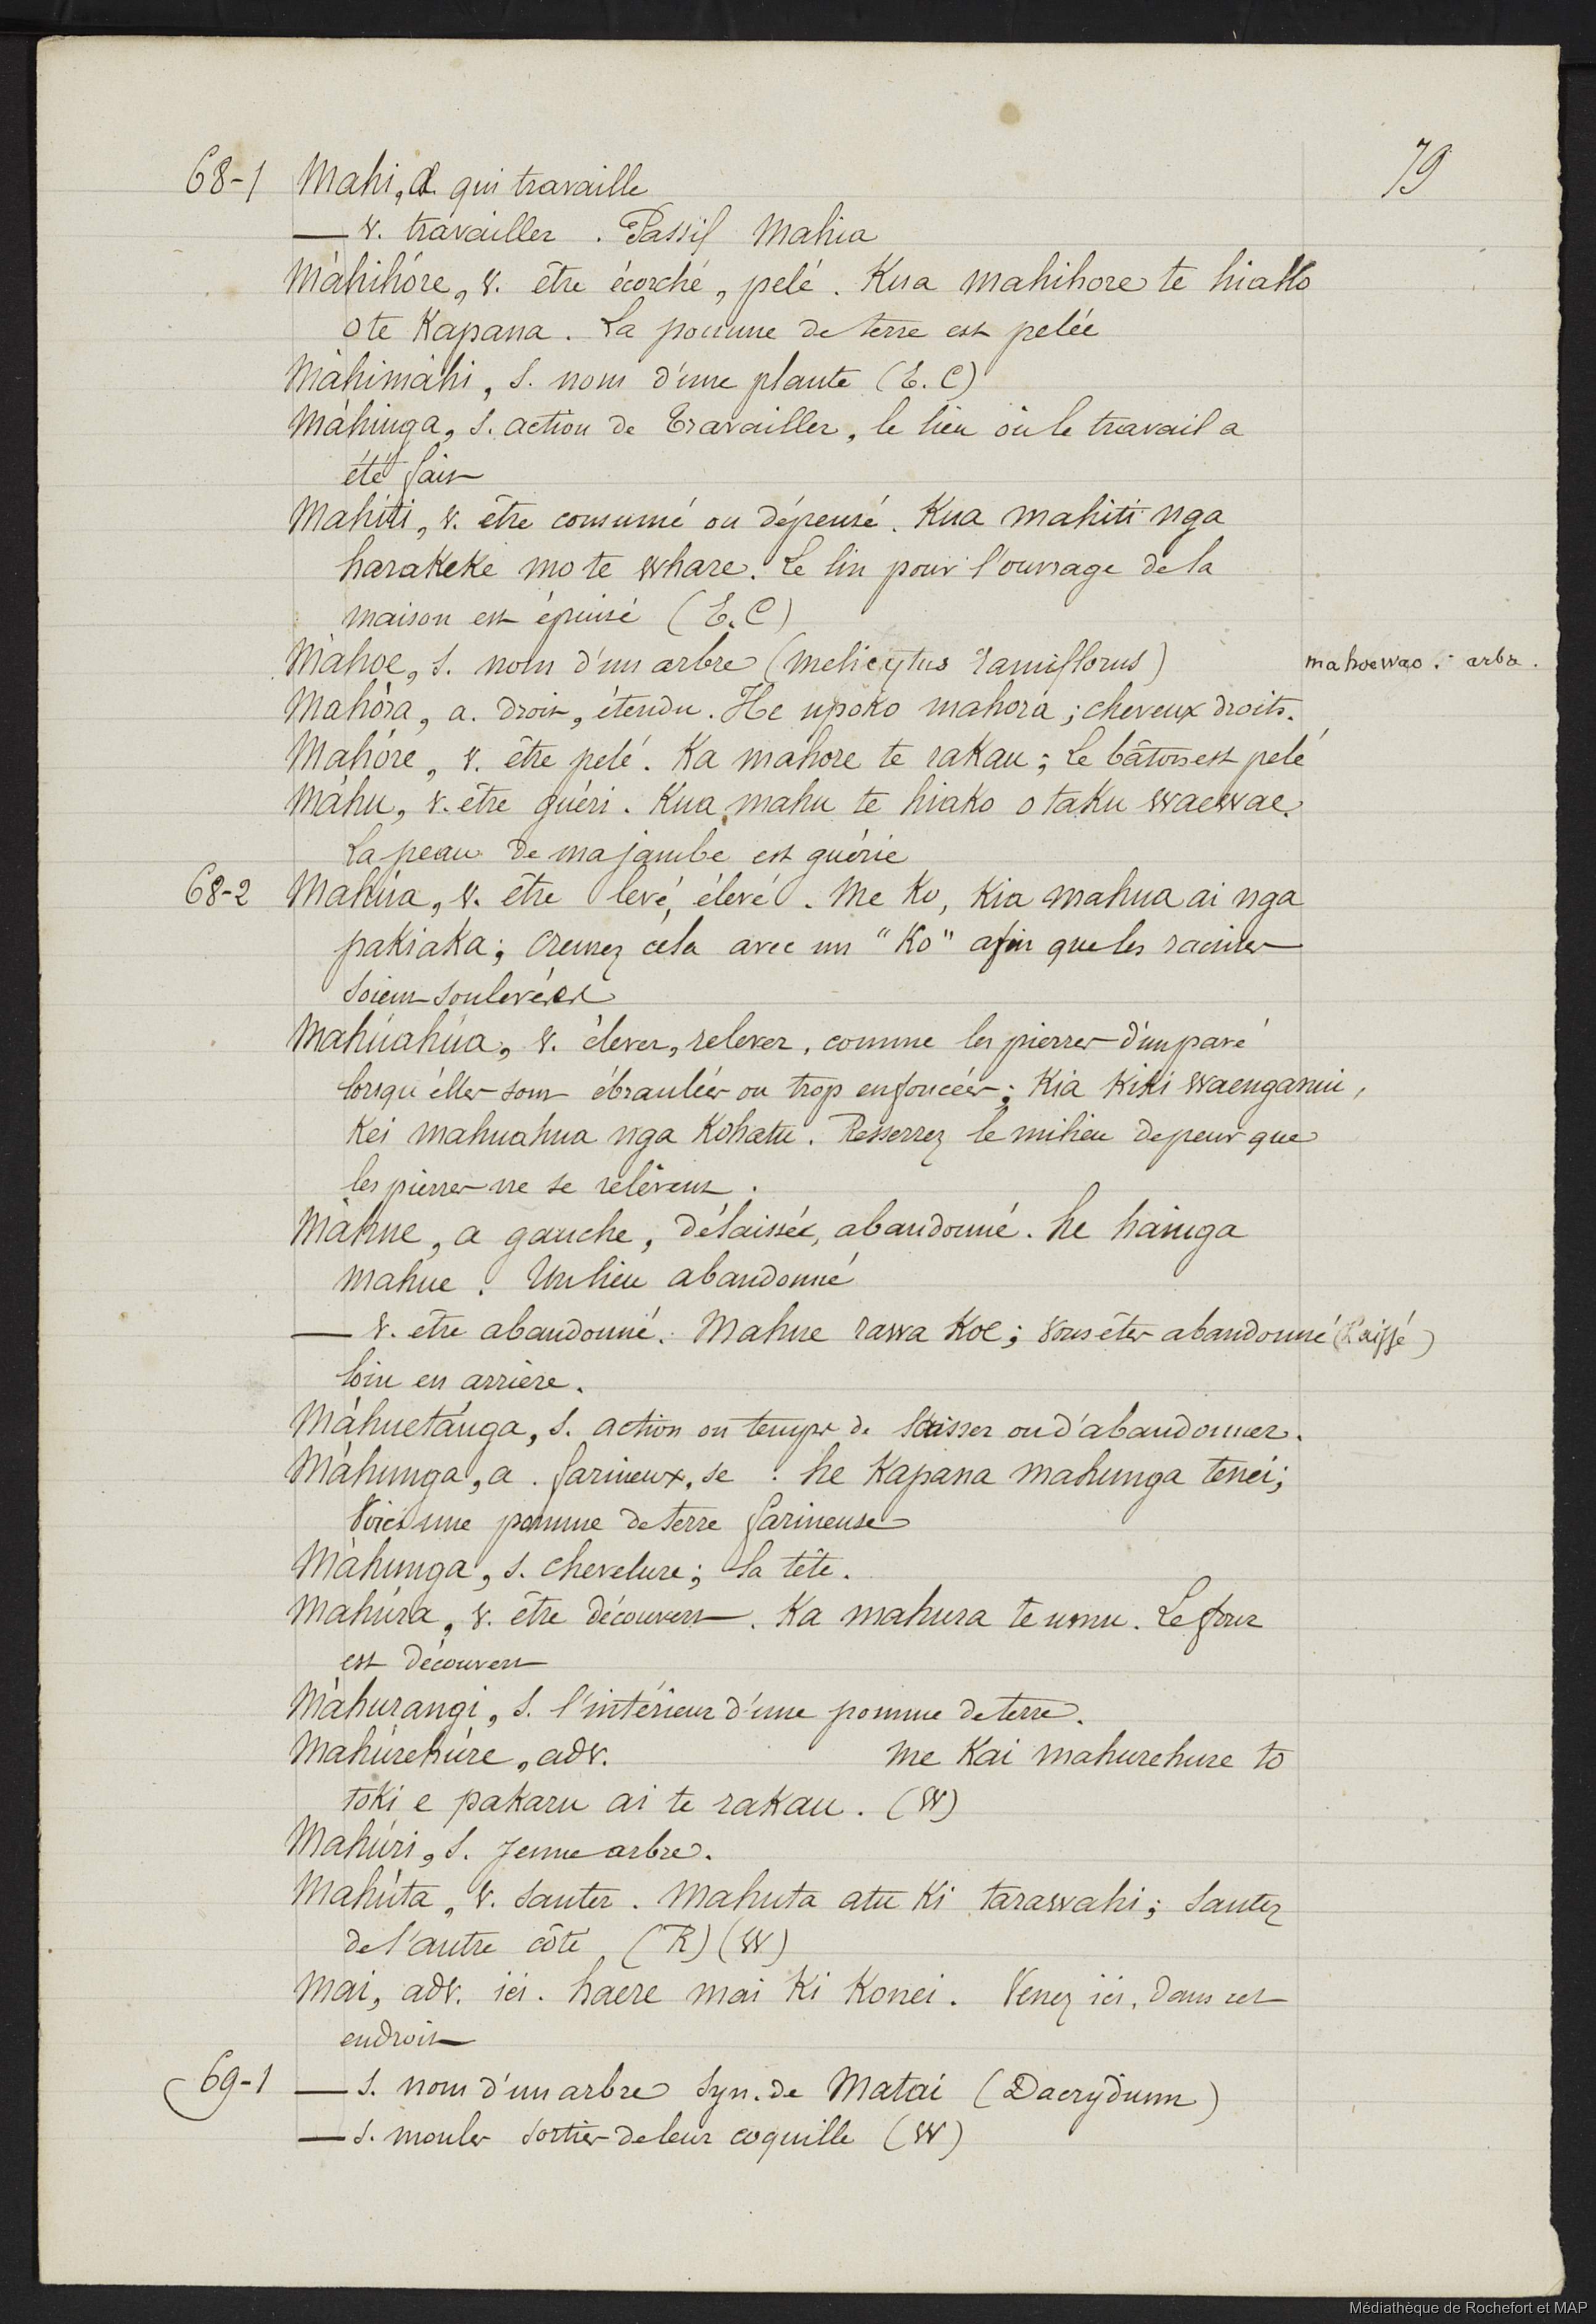 79
68-1 Mahi, a. qui travaille
— v. travailler. Passif Mahia
Màhihóre, v. être écorché, pelé. Kua mahihore te hiako
o te Kapana. La pomme de terre est pelée
Màhimàhi, s. nom d'une plante (E. C)
Máhinga, s. action de travailler, le lieu où le travail a
été fait
Mahíti, v. être consumé ou dépensé. Kua mahiti nga
harakeke mo te whare. Le lin pour l'ouvrage de la
maison est épuisé (E. C)
Màhoe, s. nom d'un arbre (melicytus ramiflorus) mahoewao : arbre.
Mahóra, a. droit, étendu. He upoko mahora ; cheveux droits.
Mahóre, v. être pelé. Ka mahore te rakau ; le bâton est pelé
Máhu, v. être guéri. Kua mahu te hiako o taku waewae.
La peau de ma jambe est guérie
68-2 Mahúa, v. être levé, élevé. Me Ko, Kia mahua ai nga
pakiaka ; creusez cela avec un "Ko" afin que les racines
soient soulevées
Mahúahúa, v. élever, relever, comme les pierres d'un pavé
lorsqu'elles sont ébranlées ou trop enfoncées ; Kia Kiki waenganui,
Kei mahuahua nga Kohatu. Resserrez le milieu de peur que
les pierres ne se relèvent.
Màhue, a gauche, délaissée, abandonné. he hainga
mahue. Un lieu abandonné
— v. être abandonné. Mahue rawa Koe ; vous êtes abandonné (laissé)
loin en arrière.
Máhuetánga, s. action ou temps de laisser ou d'abandonner.
Máhunga, a. farineux, se. he Kapana mahunga tenei ;
Voici une pomme de terre farineuse
Màhunga, s. chevelure ; la tête.
Mahúra, v. être découvert. Ka mahura te umu. Le four
est découvert
Màhurangi, s. l'intérieur d'une pomme de terre.
Mahúrehúre, adv. me Kai mahurehure to
toki e pakaru ai te rakau. (W)
Mahúri, s. Jeune arbre.
Mahúta, v. sauter. Mahuta atu Ki tarawahi ; sautez
de l'autre côté (R) (W)
Mai, adv. ici. haere mai Ki Konei. Venez ici, dans cet
endroit
69-1 — s. nom d'un arbre syn. de Matai (Dacrydum)
— s. moules sorties de leur coquille (W)
Médiathèque de Rochefort et MAP